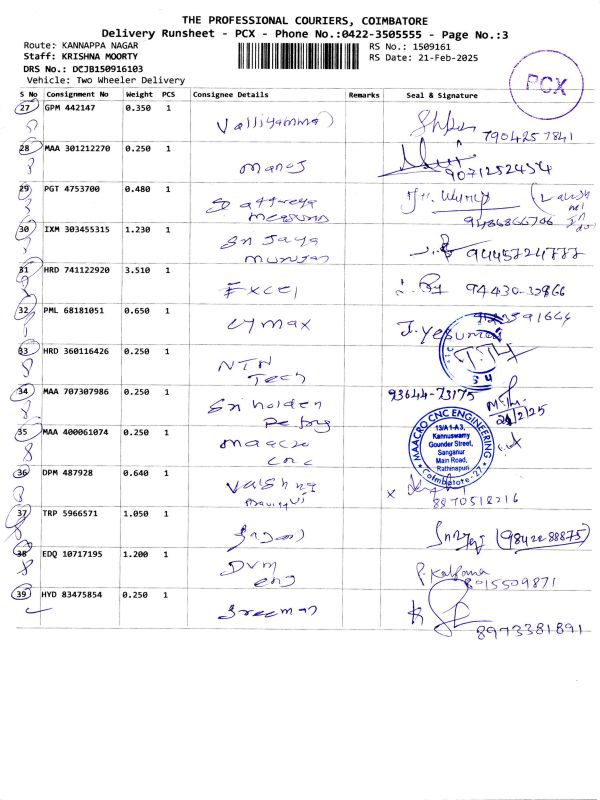 THE PROFESSIONAL COURIERS, COIMBATORE
Delivery Runsheet - PCX - Phone No.:0422-3505555 - Page No.:3
Route: KANNAPPA NAGAR
RS No.: 1509161
Staff: KRISHNA MOORTY
RS Date: 21-Feb-2025
DRS No.: DCJB150916103
Vehicle: Two Wheeler Delivery
PCX
S No Consignment No Weight PCS Consignee Details Remarks Seal & Signature
27 GPM 442147 0.350 1
Valliyammal
7904257841
28 MAA 301212270 0.250 1
Manoj
9071252454
29 PGT 4753700 0.480 1
Dattreya
9486866706
30 IXM 303455315 1.230 1
Sri Jaya
Murugan
9445724777
31 HRD 741122920 3.510 1
Excel
94430-32866
32 PML 68181051 0.650 1
Cymax
J. Yesumani
33 HRD 360116426 0.250 1
NTN
Tech
34 MAA 707307986 0.250 1
93644-73175
Sri holden
21/2/25
35 MAA 400061074 0.250 1
Maacro
cnc
MAACRO CNC ENGINEERING
13/A1-A3,
Kannuswamy
Gounder Street,
Sanganur
Main Road,
Rathinapuri
Coimbatore-27
36 DPM 487928 0.640 1
Vaishna
8870518216
37 TRP 5966571 1.050 1
(9842288875)
38 EDQ 10717195 1.200 1
DVM
eng
P. Kalpana
8015509871
39 HYD 83475854 0.250 1
Sreeman
8973381891